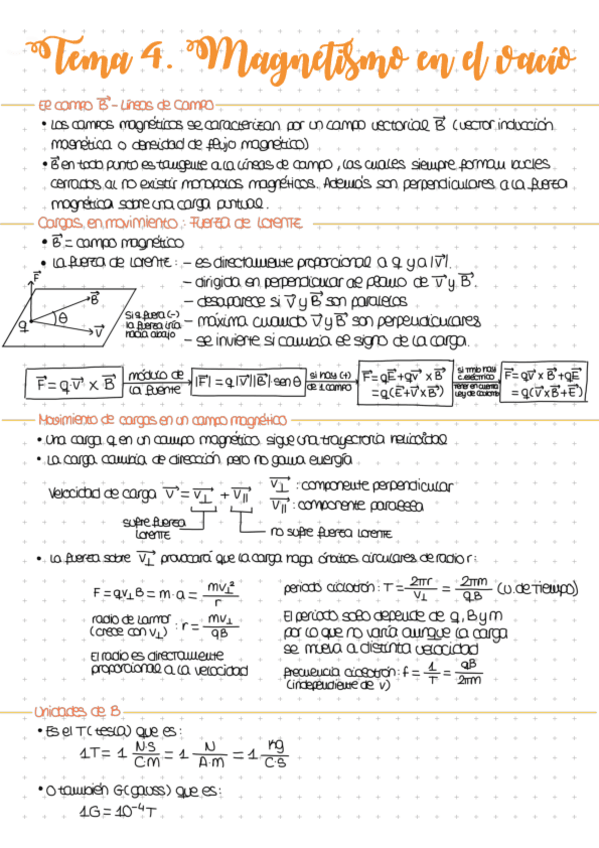 Tema 4. Magnetismo en el vacío
El campo B⃗ - Líneas de campo
• Los campos magnéticos se caracterizan por un campo vectorial B⃗ (vector inducción
magnética o densidad de flujo magnético)
• B⃗ en todo punto es tangente a la líneas de campo, las cuales siempre forman bucles
cerrados al no existir monopolos magnéticos. Además son perpendiculares a la fuerza
magnética sobre una carga puntual.
Cargas en movimiento: Fuerza de LORENTE
• B⃗ = campo magnético
• La fuerza de Lorente: – es directamente proporcional a q y a |v⃗|.
– dirigida en perpendicular al plano de v⃗ y B⃗.
– desaparece si v⃗ y B⃗ son paralelos
– máxima cuando v⃗ y B⃗ son perpendiculares
– se invierte si cambia el signo de la carga.
F⃗
B⃗
θ
q
v⃗
Si q fuera (-)
la fuerza iría
hacia abajo
F⃗ = q·v⃗ × B⃗
módulo de
la fuente
|F⃗| = q|v⃗||B⃗| sen θ
si hay (+)
de 1 campo
F⃗ = qE⃗ + qv⃗ × B⃗
= q(E⃗ + v⃗ × B⃗)
si tmb hay
c. eléctrico
tener en cuenta
Ley de Coulomb
F⃗ = qv⃗ × B⃗ + qE⃗
= q(v⃗ × B⃗ + E⃗)
Movimiento de cargas en un campo magnético
• Una carga q en un campo magnético sigue una trayectoria helicoidal
• La carga cambia de dirección pero no gana energía
Velocidad de carga v⃗ = v⃗⊥ + v⃗∥
v⃗⊥ : componente perpendicular
v⃗∥ : componente paralela
sufre fuerza
LORENTE
no sufre fuerza LORENTE
• La fuerza sobre v⃗⊥ provocará que la carga haga órbitas circulares de radio r:
F = qv⊥B = m·a = mv⊥²/r
radio de larmor
(crece con v⊥) : r = mv⊥/qB
El radio es directamente
proporcional a la velocidad
periodo ciclotrón: T = 2πr/v⊥ = 2πm/qB (u. de tiempo)
El periodo solo depende de q, B y m
por lo que no varía aunque la carga
se mueva a distinta velocidad
Frecuencia ciclotrón: f = 1/T = qB/2πm
(independiente de v)
Unidades de B
• Es el T (tesla) que es:
1T = 1 N·S/C·m = 1 N/A·m = 1 kg/C·s
• O también G (gauss) que es:
1G = 10⁻⁴T